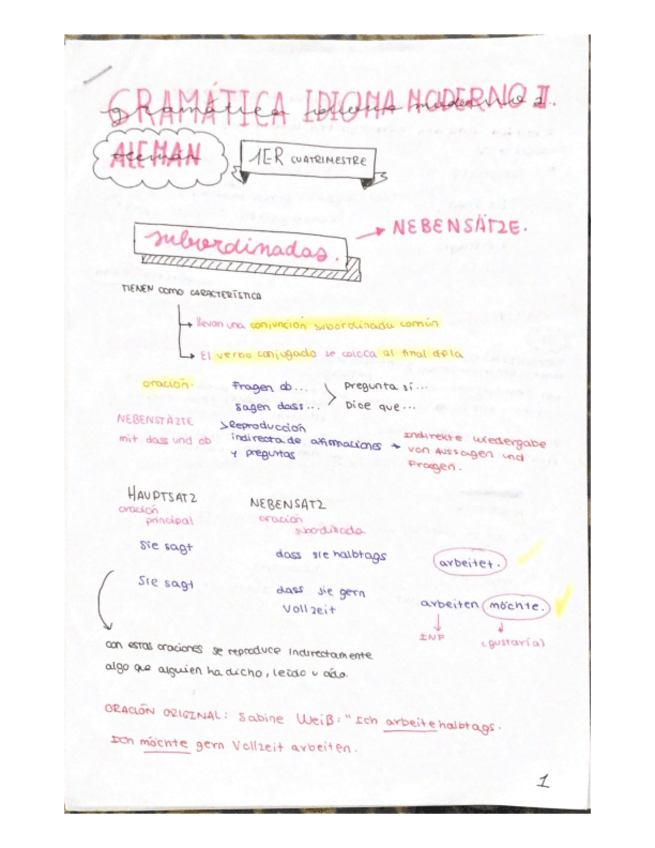 GRAMÁTICA IDIOMA MODERNO II.
ALEMÁN
1ER CUATRIMESTRE
subordinadas. → NEBENSÄTZE.
TIENEN COMO CARACTERÍSTICA
→ llevan una conjunción subordinada común
→ El verbo conjugado se coloca al final de la
oración. Fragen ob... Pregunta si...
sagen dass... Dice que...
NEBENSTÄZTE
mit dass und ob
> Reproducción
indirecta de afirmaciones
y preguntas
→ Indirekte Wiedergabe
von Aussagen und
Fragen.
HAUPTSATZ NEBENSATZ
oración
principal
oración
subordinada
Sie sagt dass sie halbtags arbeitet.
Sie sagt dass sie gern
Vollzeit arbeiten möchte.
INF (gustaría)
con estas oraciones se reproduce indirectamente
algo que alguien ha dicho, leído u oído.
ORACIÓN ORIGINAL: Sabine Weiß: "Ich arbeite halbtags.
Ich möchte gern Vollzeit arbeiten.
1